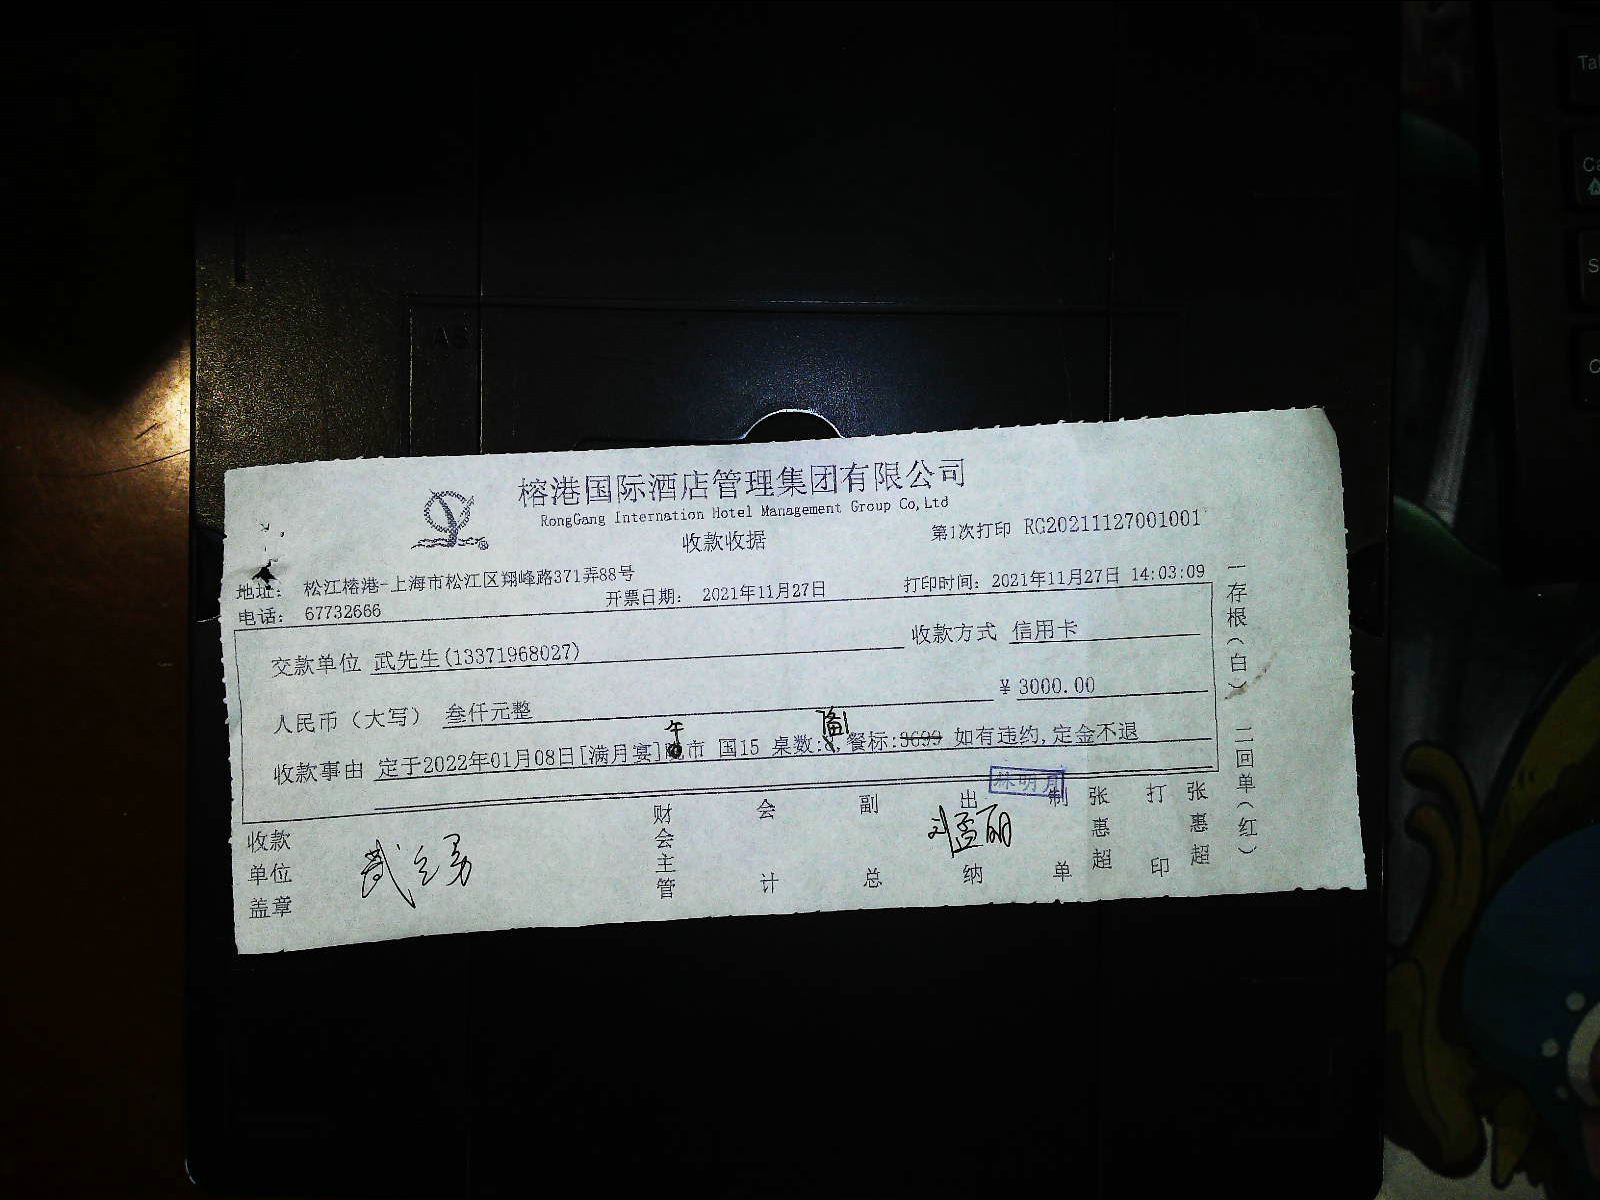 榕港国际酒店管理集团有限公司
RongGang Internation Hotel Management Group Co,Ltd
收款收据
第1次打印 RG20211127001001
地址: 松江榕港-上海市松江区翔峰路371弄88号
电话: 67732666
开票日期: 2021年11月27日
打印时间: 2021年11月27日 14:03:09
交款单位 武先生(13371968027)
收款方式 信用卡
人民币（大写） 叁仟元整
¥ 3000.00
午
收款事由 定于2022年01月08日[满月宴]晚市 国15 桌数: ,餐标:3699 如有违约,定金不退
收款单位盖章
财会主管
会计
副总
出纳
林明月
制单
张惠超
打印
张惠超
一存根(白) 二回单(红)
A5
Ta
Ca
S
C